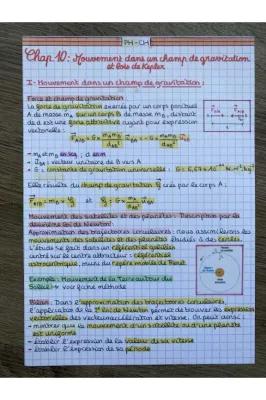 PH-CH
Chap 10: Mouvement dans un champ de gravitation
et lois de Kepler
I- Mouvement dans un champ de gravitation:
Force et champ de gravitation
La force de gravitation exercée par un corps ponctuel
A de masse mA sur un corps B de masse mB, distant
de d est une force attractive ayant pour expression
vectorielle:
- mA et mB en kg; d en m
vecteur unitaire de B vers A
- G = constante de gravitation universelle: G = 6,67 x 10
Elle résulte du champ de gravitation créé par le corps A:
Mouvement des satellites et des planètes: Description par la
deuxième loi de Newton:
Approximation des trajectoires circulaires: nous assimilerons les
mouvements des satellites et des planètes étudiés à des cercles.
L'étude se fait dans un référentiel
centré sur le centre attracteur: référentiel
astrocentrique, muni du repère mobile de Frenet
Exemple: Mouvement de la Terre autour du
Soleil → voir fiche méthode
Bilan: Dans l'approximation des trajectoires circulaires,
l'application de la 2e loi de Newton permet de trouver les expressions
des vecteurs accélération et vitesse. On peut ainsi:
- montrer que le mouvement d'un satellite ou d'une planète
est uniforme
- établir l'expression de la valeur de sa vitesse
- établir l'expression de sa période